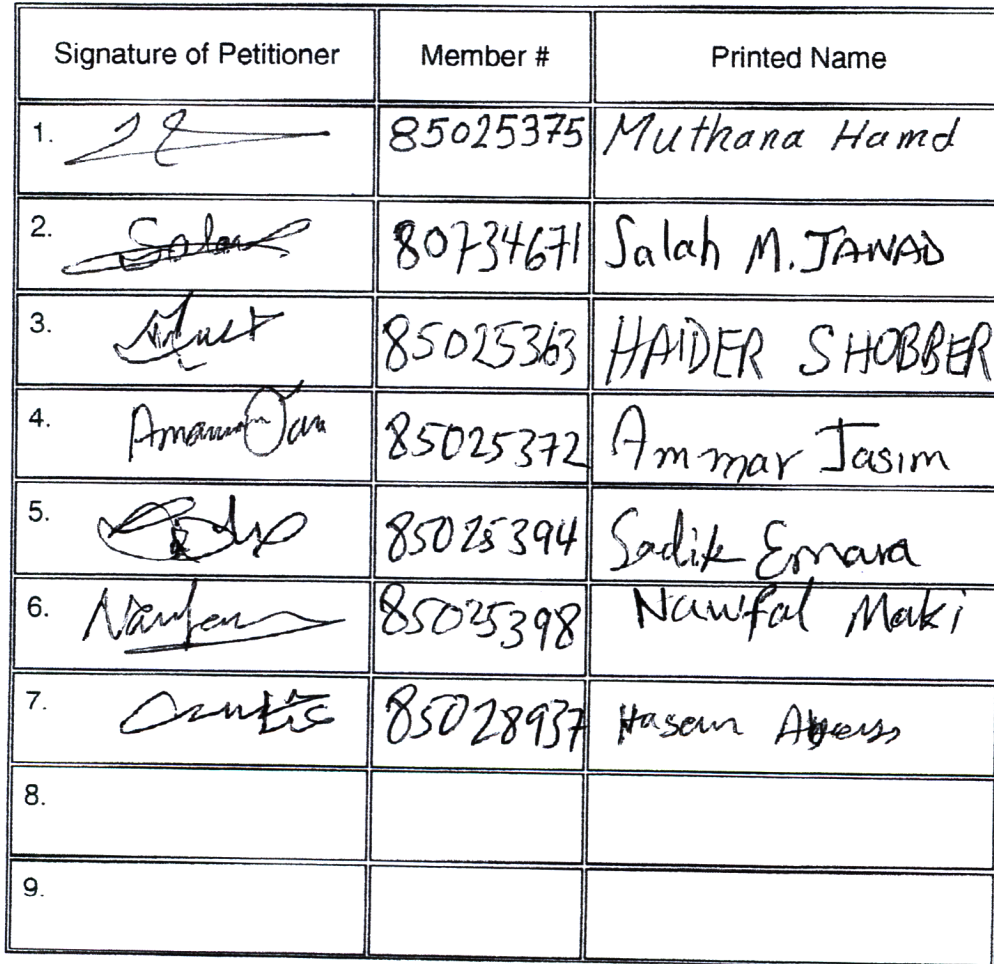 Signature of Petitioner Member # Printed Name
1. 85025375 Muthana Hamd
2. Salah 80734671 Salah M. JAWAD
3. 85025363 HAIDER SHOBBER
4. 85025372 Ammar Jasim
5. 85025394 Sadik Emara
6. 85025398 Nawfal Maki
7. 85028937 Hasan
8.
9.